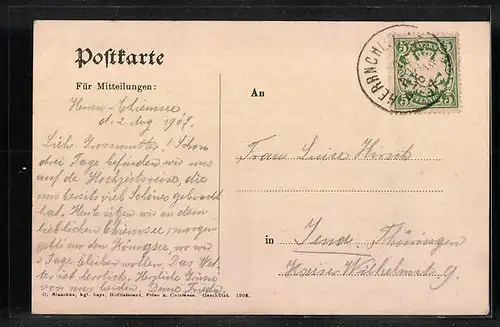 Postkarte
Für Mitteilungen:
Herren-Chiemsee
d. 2 Aug 1909.
Liebe Grossmutter! Schon
drei Tage befinden wir uns
auf de Hochzeitsreise, die
uns bereits viel Schönes gebracht
hat. Heute sitzen wir an dem
lieblichen Chiemsee, morgen
geht's an den Königsee, wo wir
Tage bleiben wollen. Das Wet-
ter ist herrlich. Herzliche Grüsse
von uns beiden. Deine Frieda.
An
Frau Luise Hirsch
in Jena, Thüringen
Kaiser Wilhelmst. 9.
HERRNCHI
5 BAYERN 5
Blaschke, kgl. bayr. Hoflieferant, Prien a. Chiemsee. Geschützt. 1906.